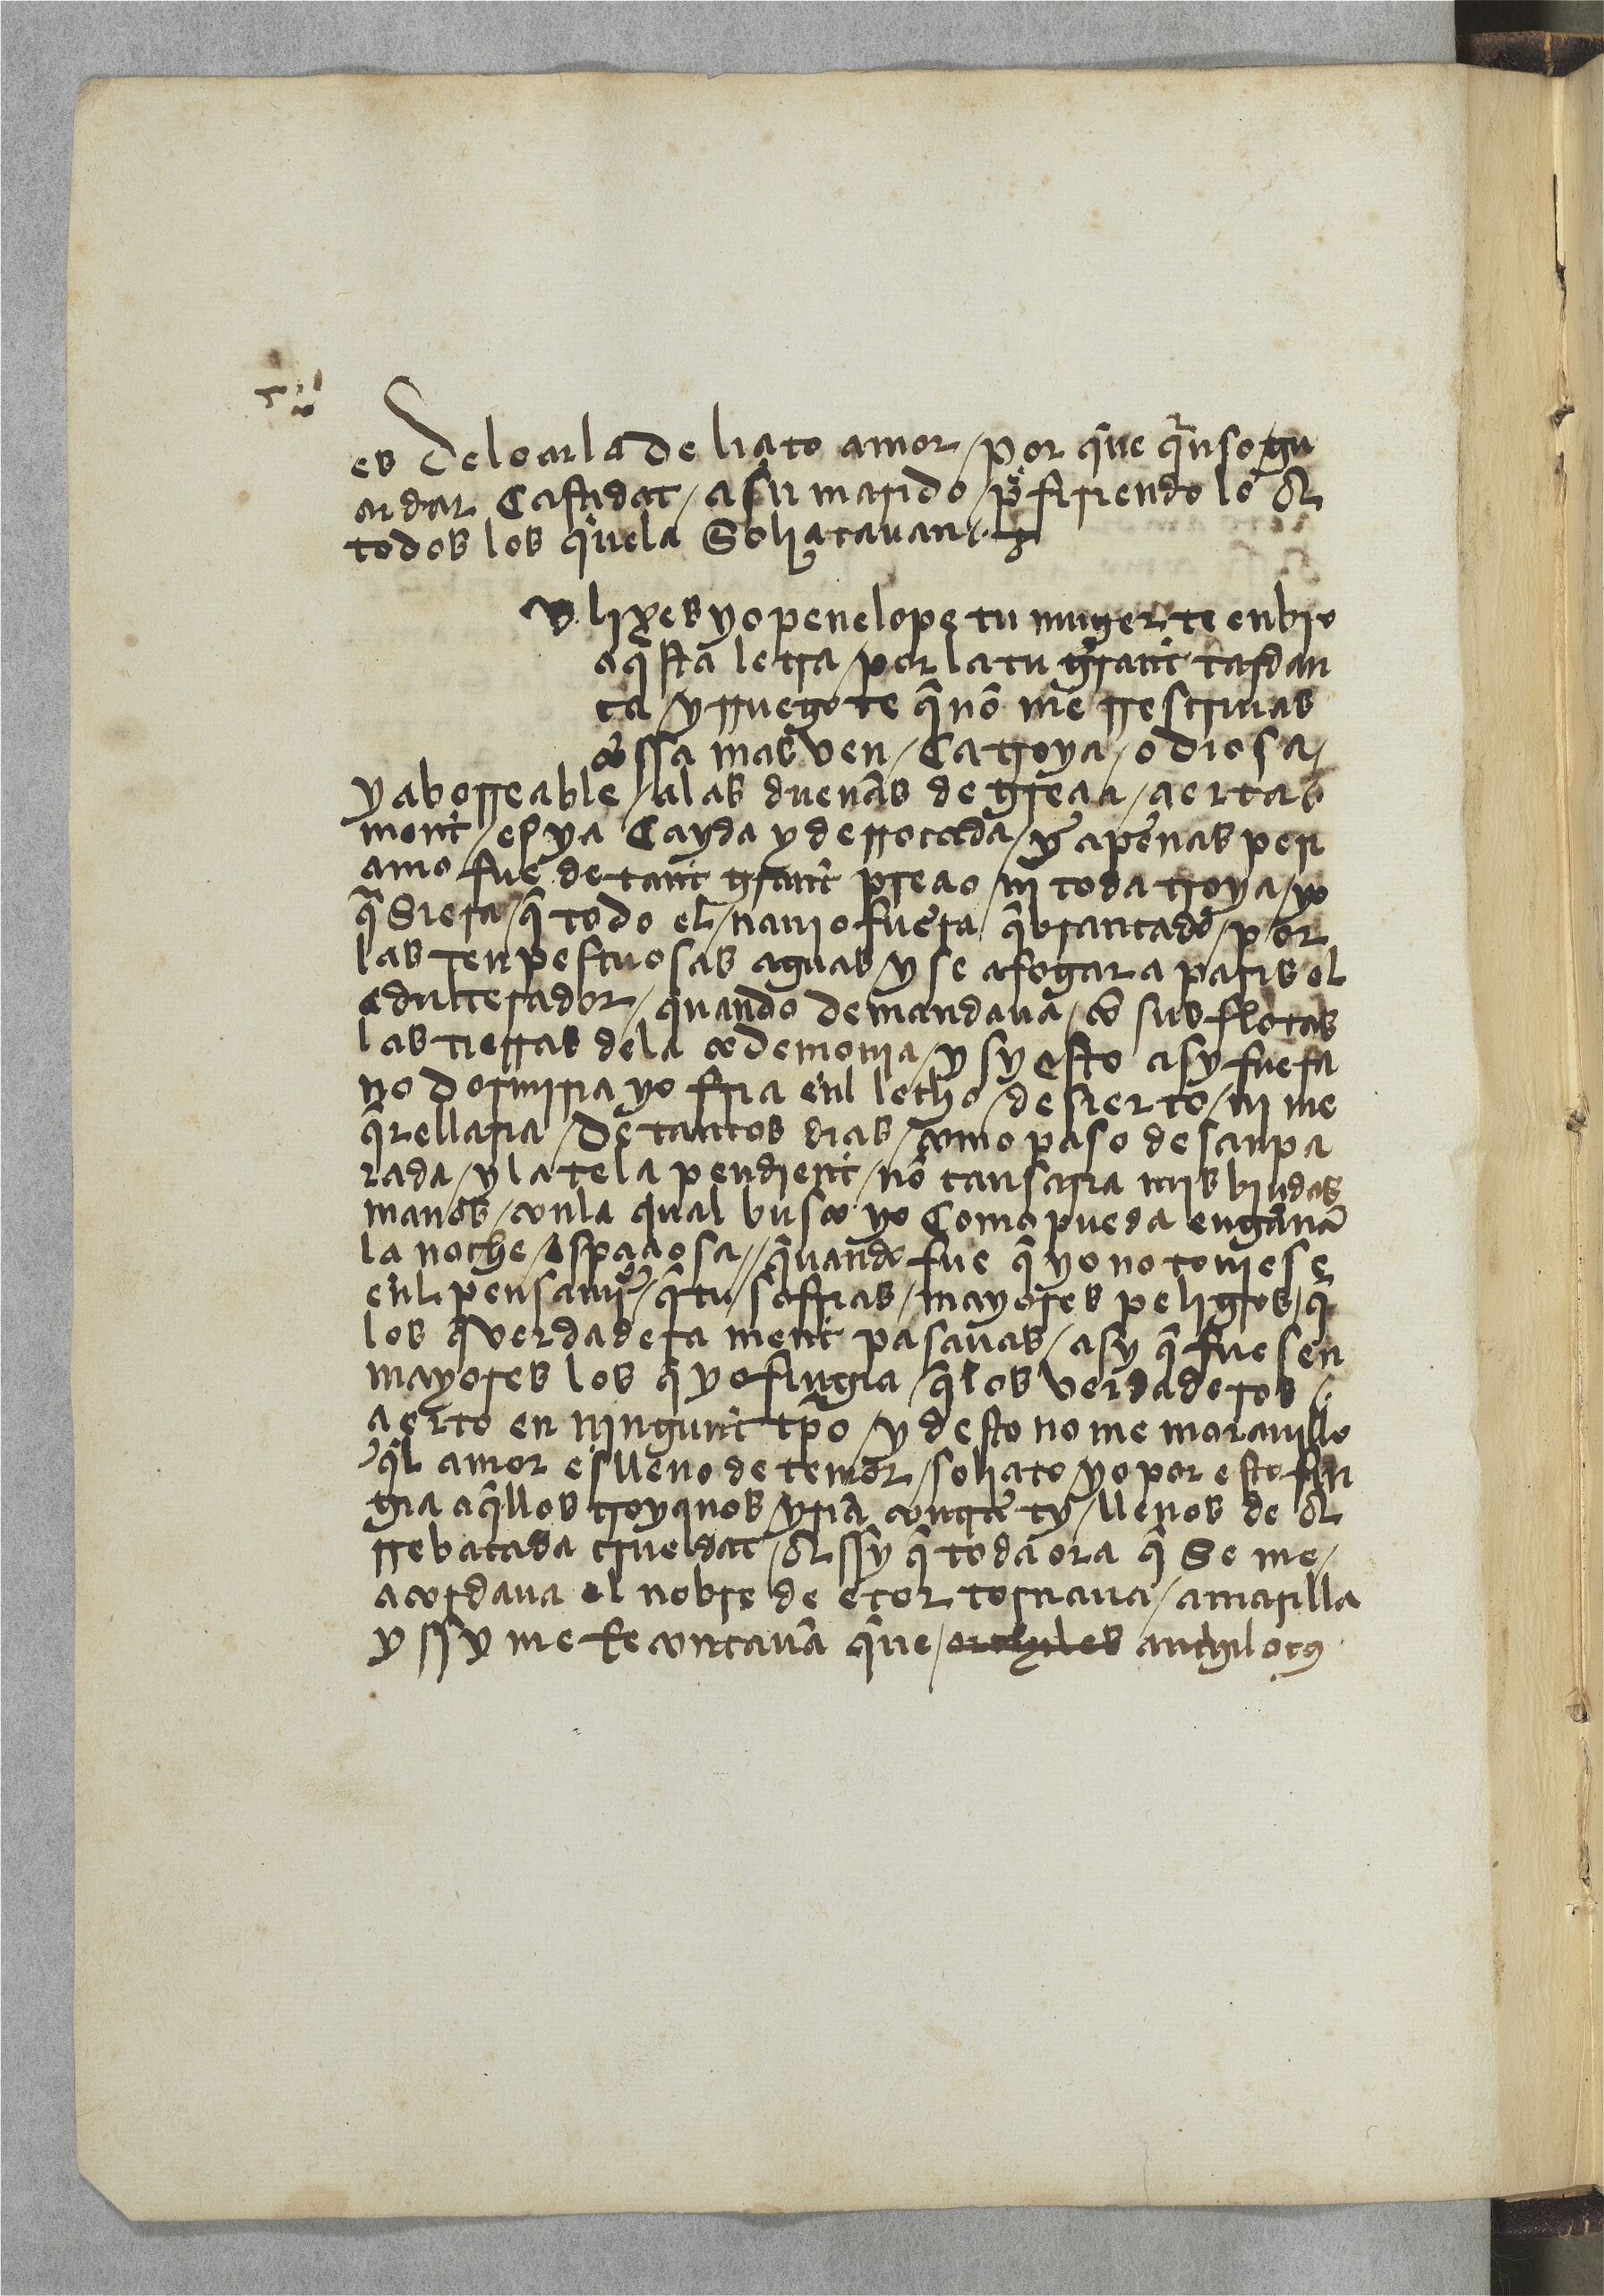 es de loar la de liçito amor / por que quiso / gu
ardar Castidat / a su marido / prefiriendo lo A
todos los quela Soliçitauan /.
Vlixes yo penelope tu muger te enbio
aqsta letra / por la tu grant tardan
ça / y rruego te q̃ nõ me rrescriuas
cossa mas ven / Ca troya / odiosa /
y aborreçible / a las duenãs de greçia / çierta
ment / es ya Cayda y derrocada / y apenas peri
amo fue de tant grant preçio / ni toda troya / yo
q̃Siera / q̃ todo el / nauio fuera / q̃brantado / por
las tenpestuosas aguas / y se afogara paris el
adulterador / quando demandaua / cõ sus flotas
las tierras dela çedemonia / y sy esto asy fuera
no dormiria yo fria enl lecho / desierto / ni me
q̃rellaria / De tantos dias / como paso desanpa
rada / y la tela pendient / nõ cansaria mis biudas
manos / conla qual busco yo Como pueda engañar
la noche / espaçiosa // quando fue q̃ yo no touiese
enl pensamiº / q̃ tu / sofrias / mayores peligros / q̃
los q̃ verdadera ment pasauas / asy q̃ fuesen
mayores los q̃ yo fingia / q̃ los verdaderos /.
çierto en ningunt tp̃o / y desto no me marauillo
q̃l amor es lleno de temor / soliçito / yo por esto fin
gia aq̃llos troyanos yriã contra ty / llenos de A
rrebatada crueldat / Assy q̃ toda ora q̃ Se me /
acordaua el nobre de etor tornaua / amarilla
y ssy me Recontauã que / archiles antilocꝰ